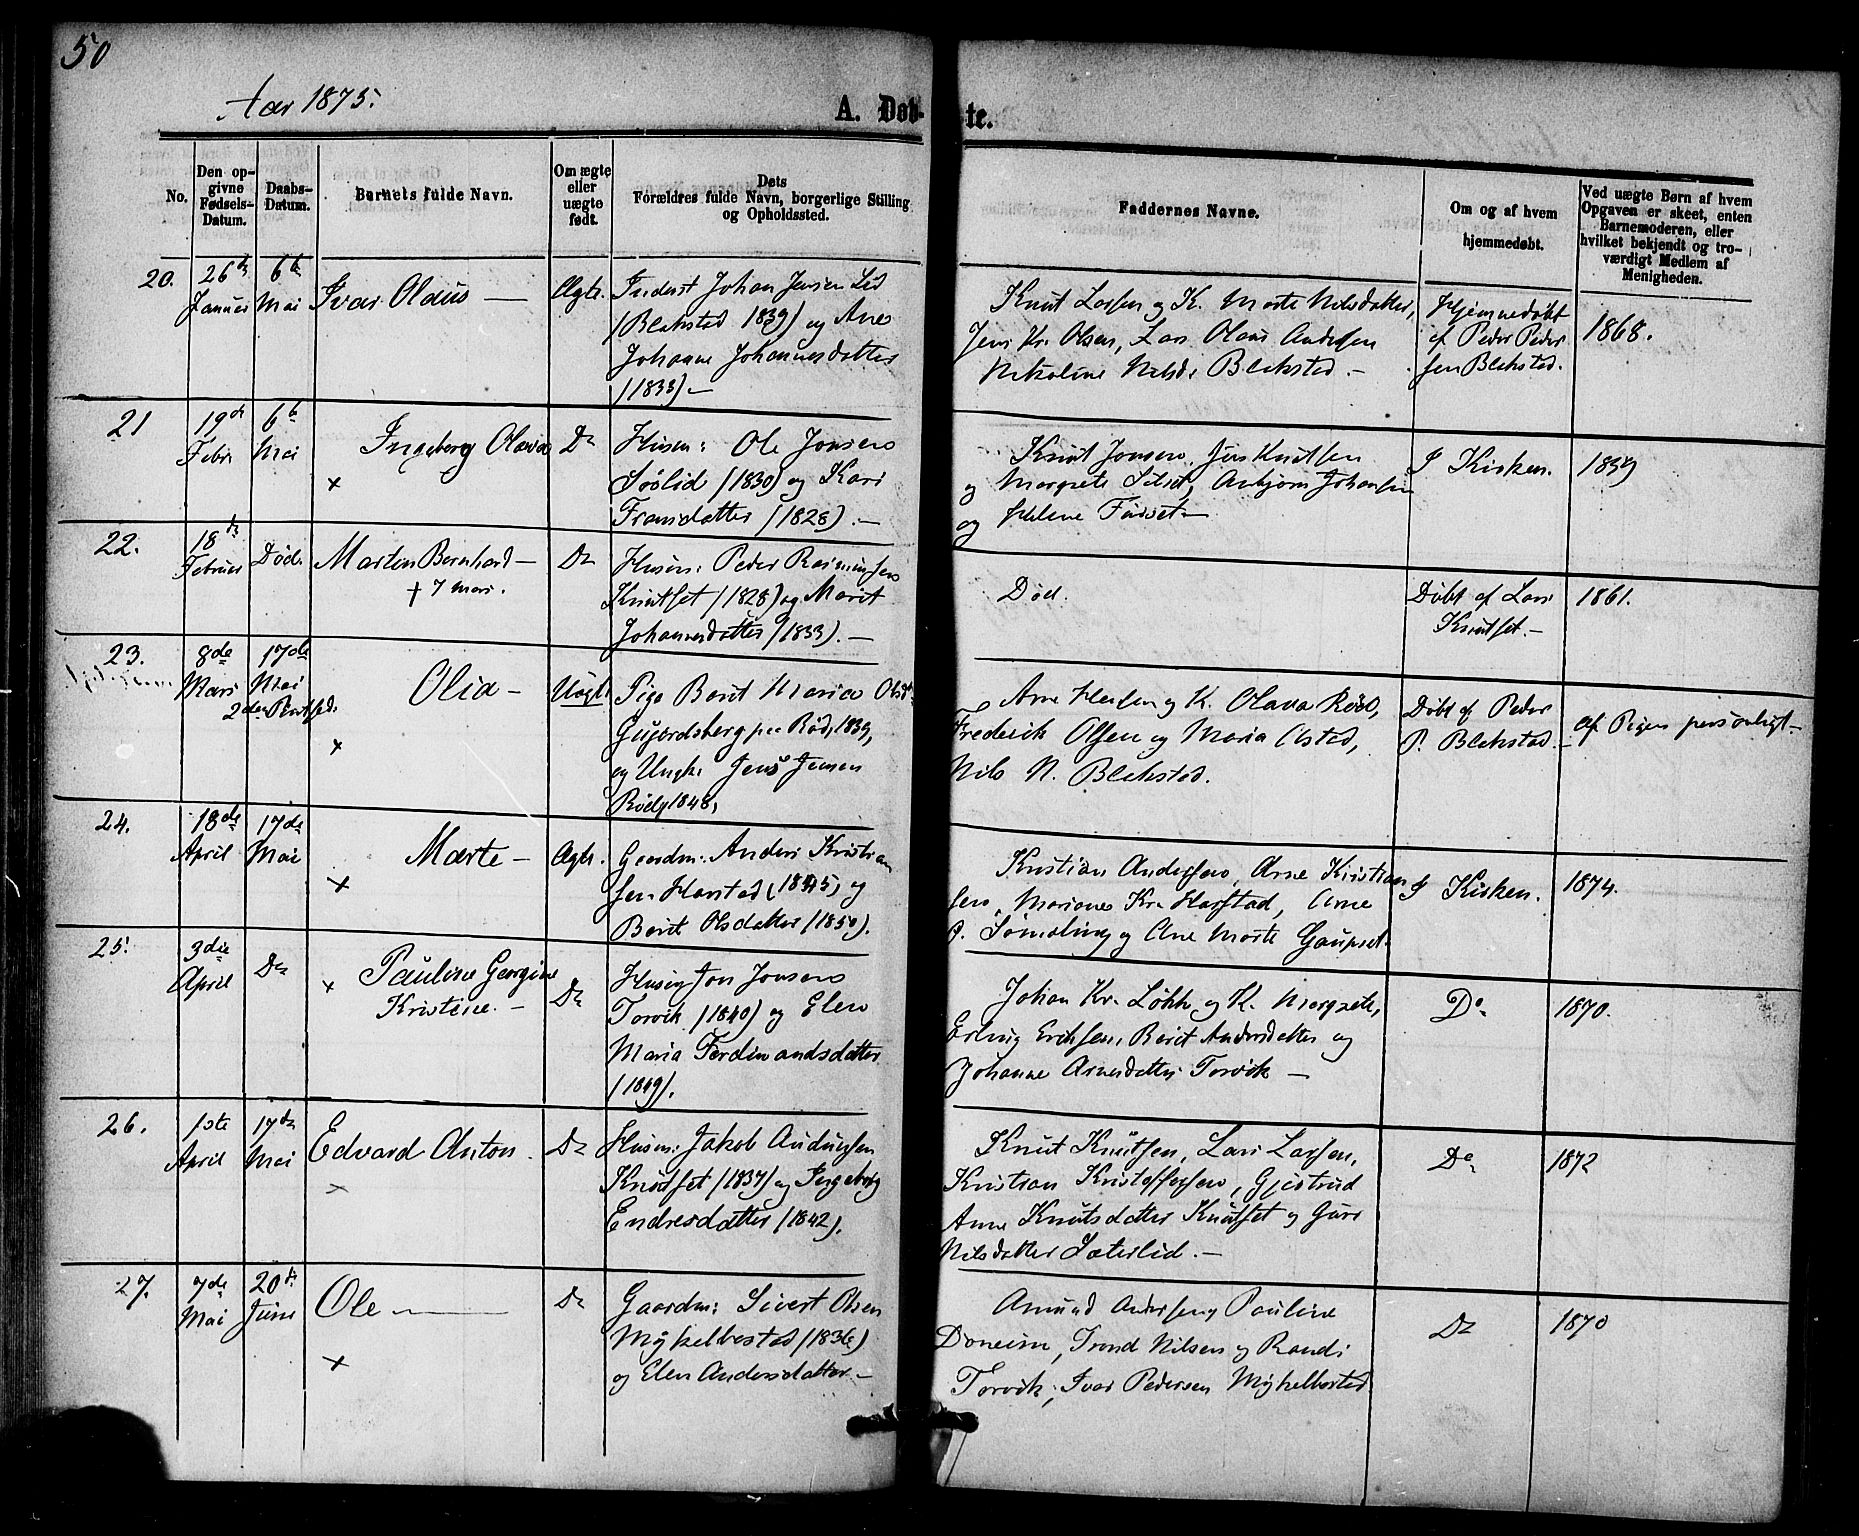 50
Aar 1875.
A. Døb-
te.
No.
Den op-
givne
Fødsels-
Datum.
Daabs-
Datum.
Barnets fulde Navn.
Om ægte
eller
uægte
født.
Dets
Forældres fulde Navn, borgerlige Stilling
og Opholdssted.
Faddernes Navne.
Om og af hvem
hjemmedøbt.
Ved uægte Børn af hvem
Opgaven er skeet, enten
Barnemoderen, eller
hvilket bekjendt og tro-
værdigt Medlem af
Menigheden.
20.
26de
Januar
6te
Mai
Ivar Oldus —
Ægte.
Inderst Johan Jensen Lid
(Blekstad 1839) og Ane
Johanne Johannesdatter
(1833) —
Knut Larsen og K. Marte Nilsdatter,
Jens Kr. Olsen, Lars Olaus Andersen
Nikoline Nilsd. Blekstad —
Hjemmedøbt
af Peder Peder
sen Blekstad.
1868.
21
19de
Febr
6te
Mai
Ingeborg Olava
x
Do
Husm: Ole Jonsen
Søslid (1830) og Kari
Fransdatter (1828). —
Knut Jonsen, Jens Knutsen
og Margrete Sitset, Anbjørn Johansen
og Helene Farset —
I Kirken.
1859
22.
18de
Februar
Død.
Marten Bernhard —
+ 7 Mars.
Do
Husm: Peder Rasmussen
Knutset (1828) og Marit
Johannesdatter (1833). —
Død.
Døbt af Lars
Knutset. —
1861.
23.
8de
Mars
17de
Mai
2den Pintsed.
Olia —
x
Uægte
Pige Berit Maria Olsd.
Gujordsberg paa Rød, 1839,
og Ungk. Jens Jensen
Rød, 1848,
Arne Heilsen og K. Olava Rød,
Frederik Olsen og Maria Olsted,
Nils N. Blekstad.
Døbt af Peder
P. Blekstad. —
af Pigen personligt —
24.
18de
April
17de
Mai
Marte —
x
Ægte.
Gaardm: Anders Kristian
sen Harstad (1845) og
Berit Olsdatter (1850).
Kristian Andersen, Arne Kristian
sen, Mariane Kr. Harstad, Arne
P. Sømoling og Ane Marte Gaupset.
I Kirken.
1874.
25.
3die
April
Do
x
Pauline Georgine
Kristine. —
Do
Husm: Jon Jonsen
Torvik (1840) og Elen
Maria Ferdinandsdatter
(1849).
Johan Kr. Løkk og K. Margrete,
Erling Eriksen, Berit Andersdatter og
Johanne Arnesdatter Torvik —
Do
1870.
26.
1ste
April
17de
Mai
Edvard Anton.
x
Do
Husm: Jakob Audunsen
Knutset (1837) og Ingeborg
Endresdatter (1842).
Knut Knutsen, Lars Larsen,
Kristian Kristoffersen, Gjertrud
Anne Knutsdatter Knutset og Guri
Nilsdatter Sæterlid. —
Do
1872
27.
7de
Mai
20de
Juni
Ole —
x
Do
Gaardm: Sivert Olsen
Myklebostad (1836)
og Elen Andersdatter —
Amund Andersen, Pauline
Doneim, Trond Nilsen og Randi
Torvik, Ivar Pedersen Myklebostad
Do
1870